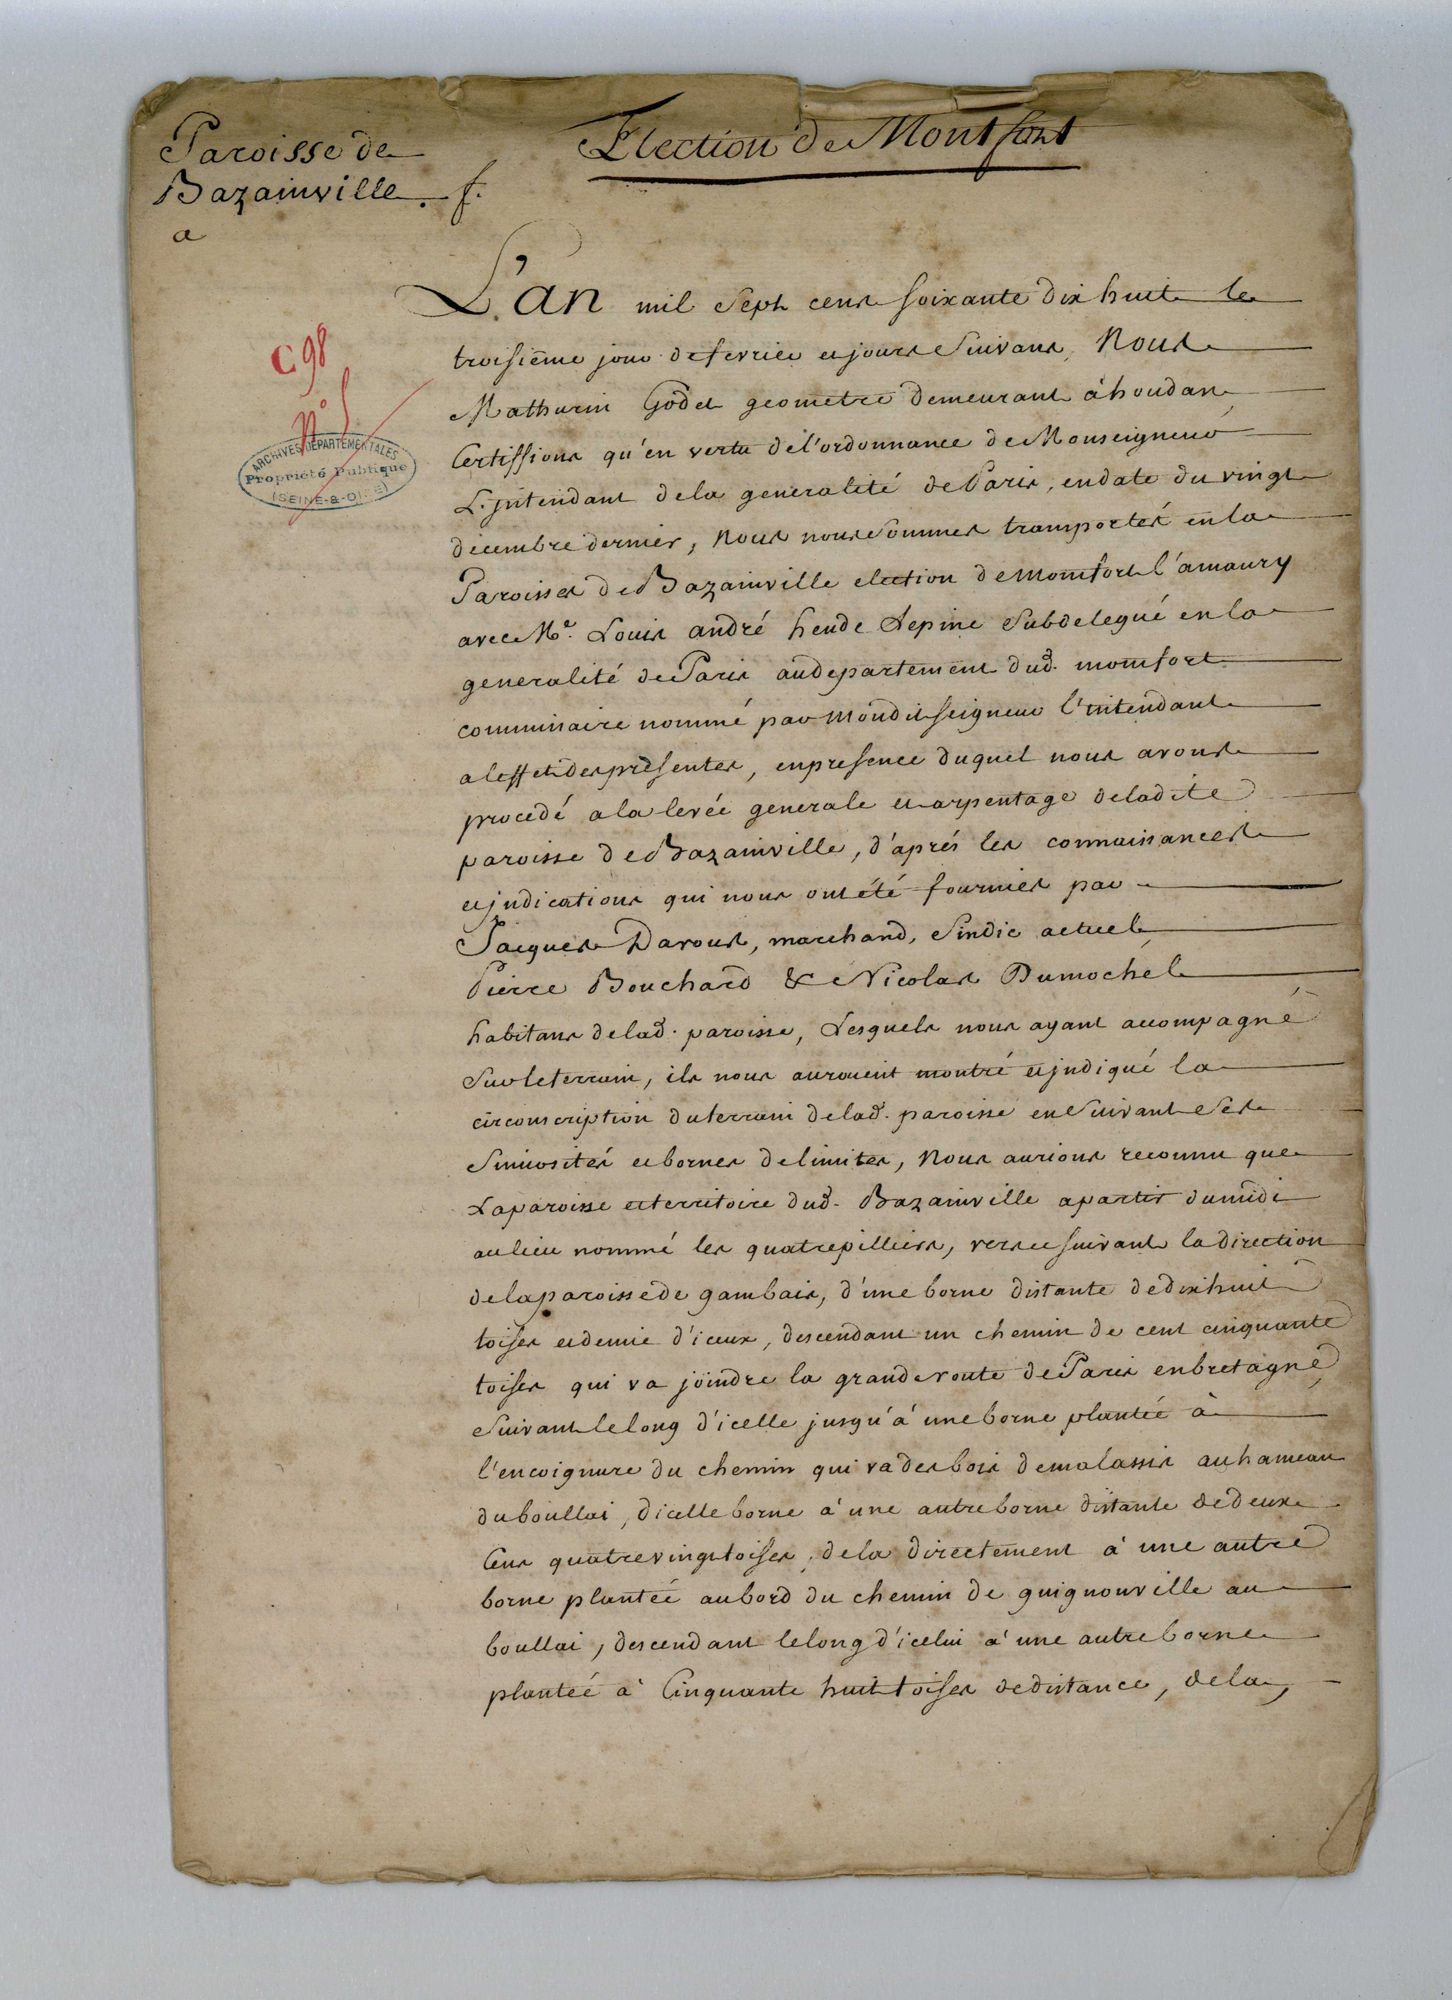 Paroisse de
Bazainville. f.
a
Election de Montfort
C 98
n° 5
ARCHIVES DÉPARTEMENTALES
Propriété Publique
(SEINE-&-OISE)
L'an mil sept cens soixante dix huit le
troisiéme jour de fevrier et jours suivans, Nous
Mathurin Godet geometre demeurant à houdan
Certiffions qu'en vertu de l'ordonnance de Monseigneur
L'jntendant de la generalité de Paris, en date du vingt
decembre dernier, nous nous sommes transportés en la
Paroisse de Bazainville election de Momfort l'amaury
avec Me. Louis andré heude Lepine Subdelegué en la
generalité de Paris au departement dud. momfort
commissaire nommé par mondit seigneur l'intendant
a l'effet des présentes, en presence duquel nous avons
procedé a la levée generale et arpentage de ladite
paroisse de Bazainville, d'aprés les connaissances
et jndications qui nous ont été fournies par
Jacques Davoust, marchand, sindic actuel
Pierre Bouchard & Nicolas Dumochel
habitans de lad. paroisse, Lesquels nous ayant accompagné
sur le terrain, ils nous auroient montré et jndiqué la
circonscription du terrain de lad. paroisse en suivant ses
sinuosités et bornes de limites, Nous aurions reconnu que
La paroisse et territoire dud. Bazainville a partir du midi
au lieu nommé les quatre pilliers, vers et suivant la direction
de la paroisse de gambais, d'une borne distante de dix huit
toises et demie d'iceux, descendant un chemin de cent cinquante
toises qui va joindre la grande route de Paris en bretagne,
suivant le long d'icelle jusqu'à une borne plantée à
l'encoignure du chemin qui va des bois de malassis au hameau
du boullai, d'icelle borne à une autre borne distante de deux
Cens quatre vingt toises, de la directement à une autre
borne plantée au bord du chemin de guignonville au
boullai, descendant le long d'icelui à une autre borne
plantée à Cinquante huit toises de distance, de la,